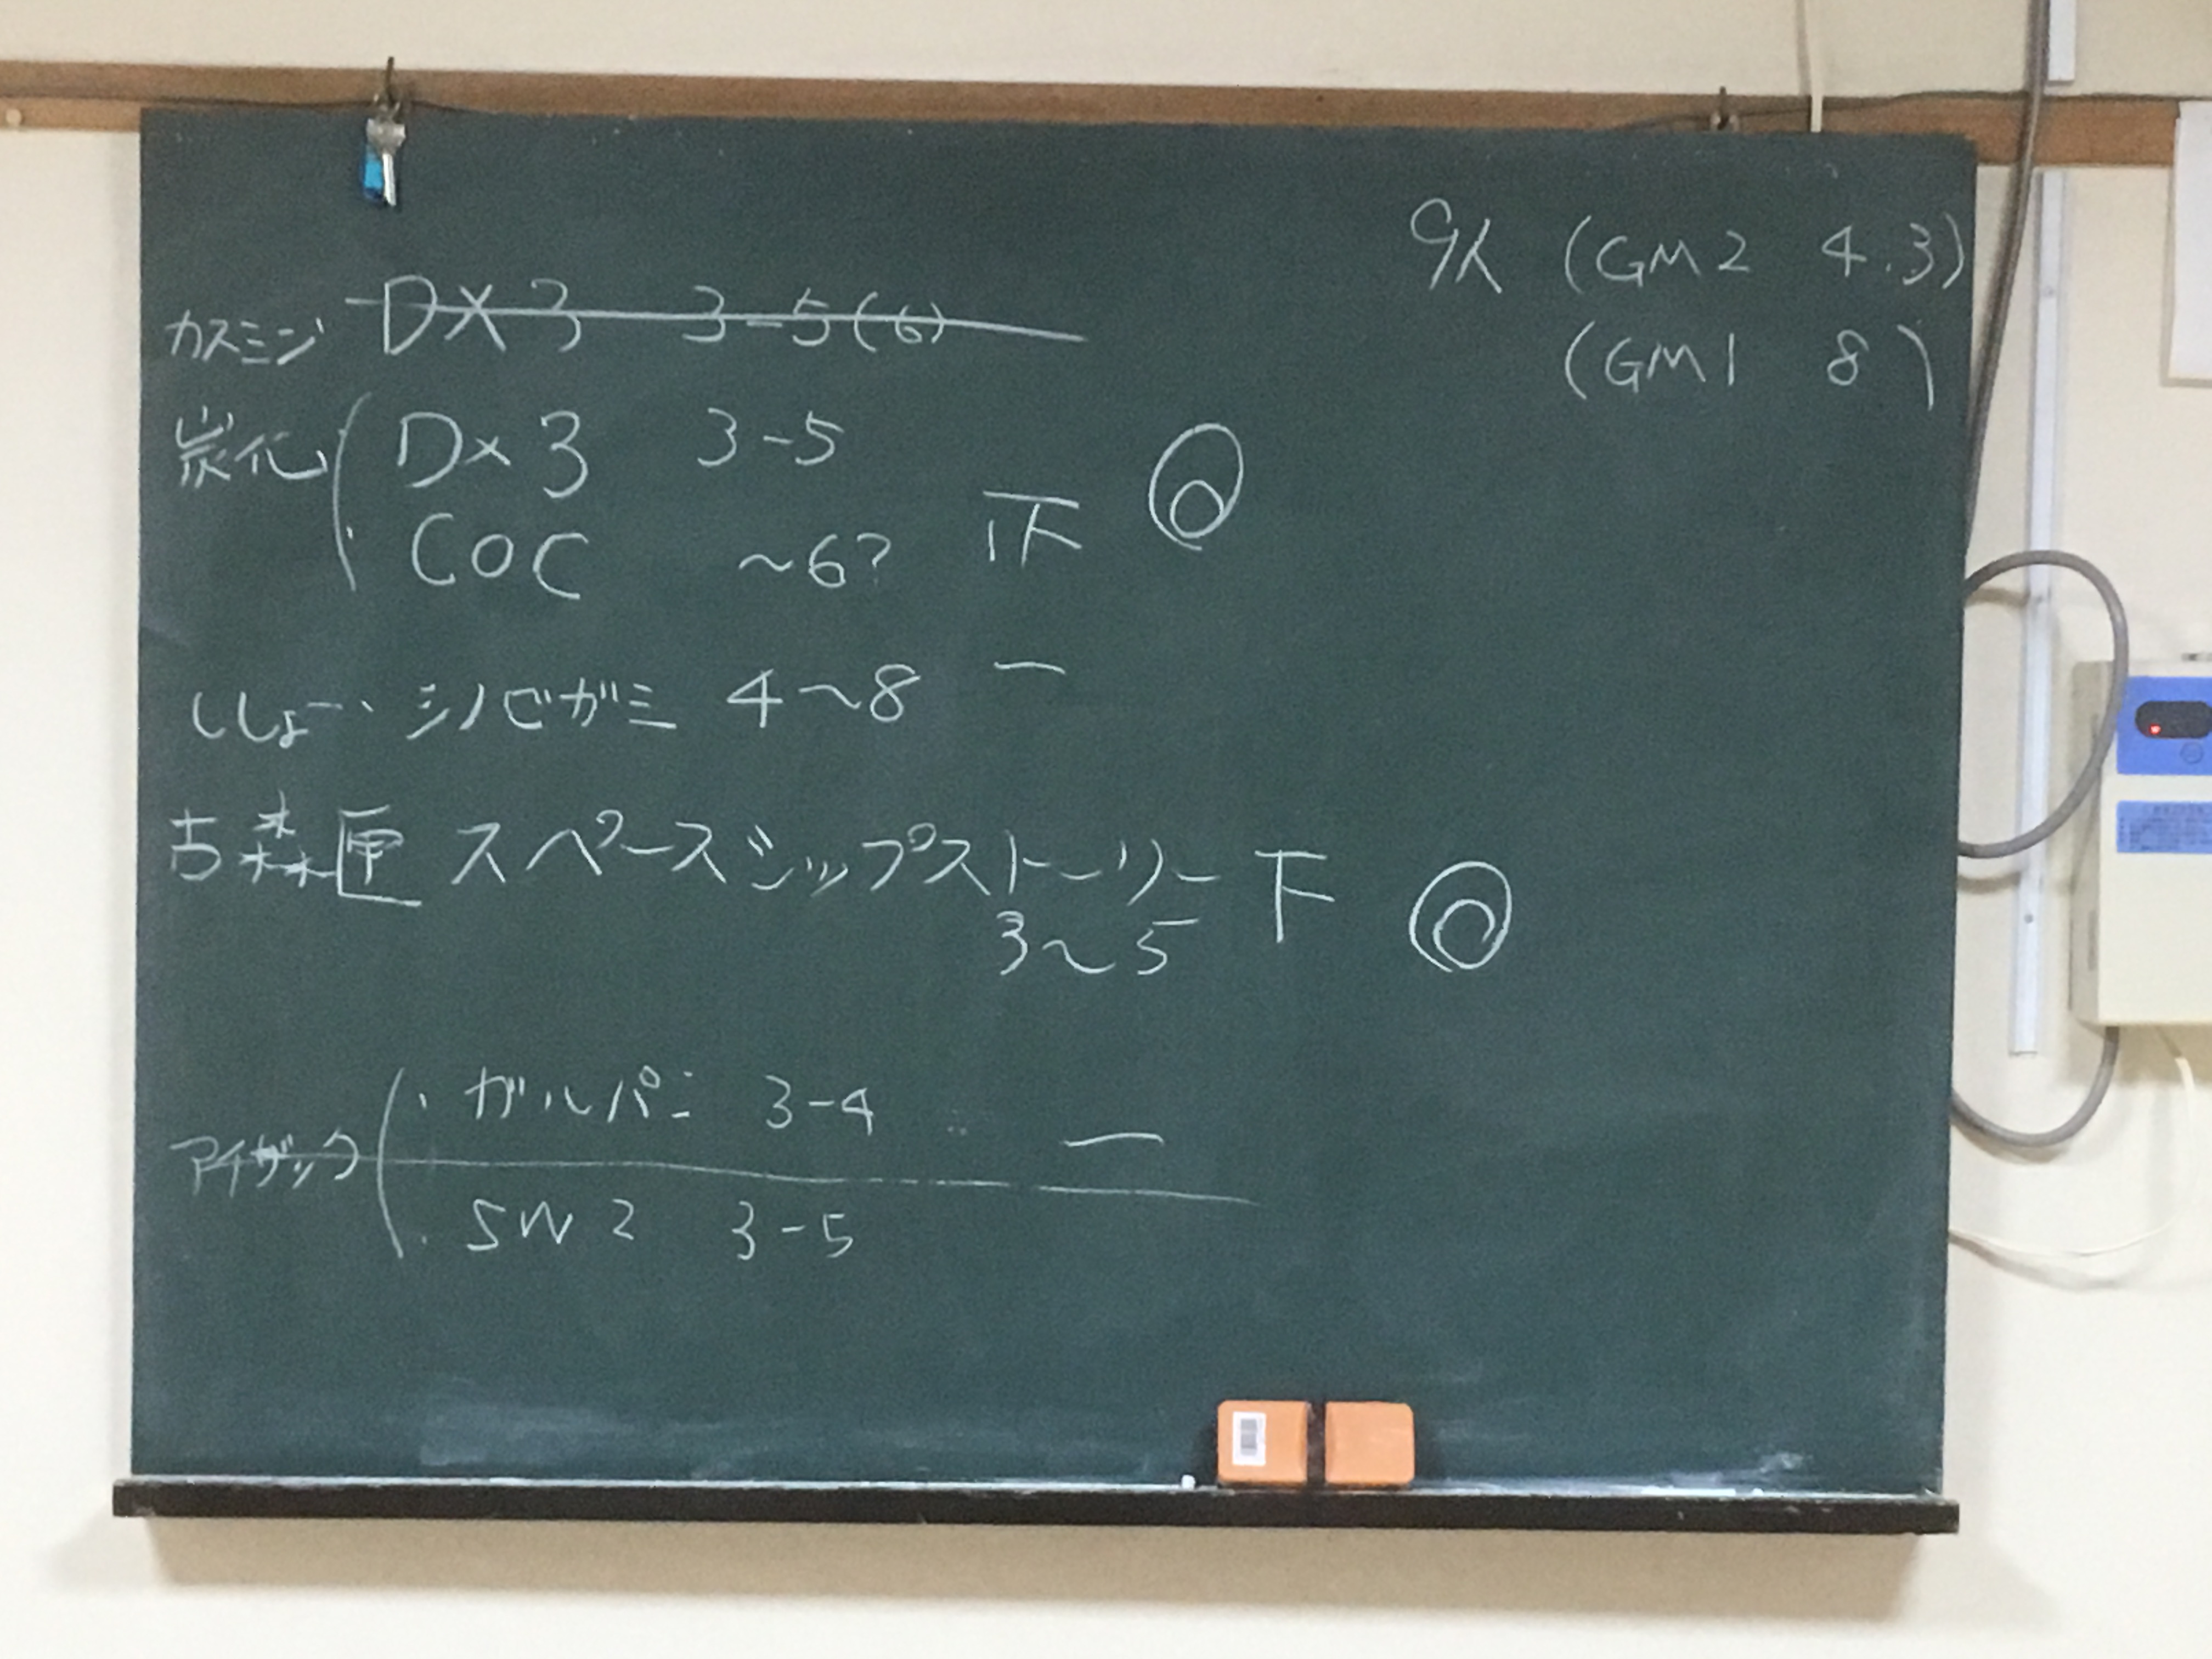 9人 (GM2 4.3)
(GM1 8)
カスミン DX3 3-5(6)
炭化 DX3 3-5
COC ~6? 正 ◎
ししょー シノビガミ 4~8 一
古森匣 スペースシップストーリー 下 ◎
3~5
アイザック
・ガルパン 3-4 一
・SW2 3-5